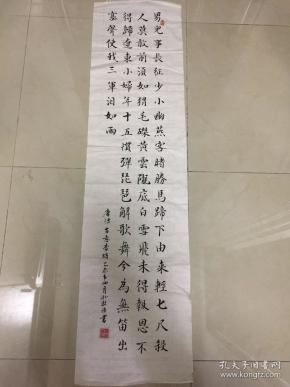 男兒事長征少小幽燕客賭勝馬蹄下由來輕七尺殺
人莫敢前須如猬毛磔黃雲隴底白雪飛未得報恩不
得歸遼東小婦年十五慣彈琵琶解歌舞今為羌笛出
塞聲使我三軍泪如雨
唐詩古意李頎乙亥年四月書
孔夫子旧书网